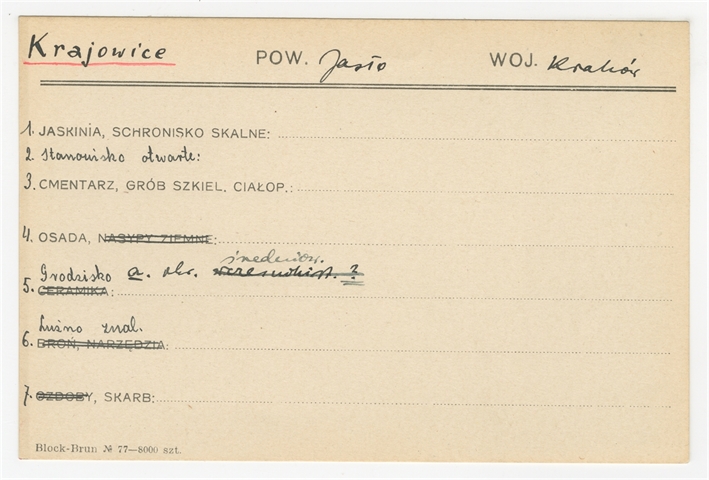 Krajowice POW. Jasło WOJ. Kraków
1. JASKINIA, SCHRONISKO SKALNE:
2. Stanowisko otwarte:
3. CMENTARZ, GRÓB SZKIEL. CIAŁOP.:
4. OSADA, NASYPY ZIEMNE:
średniow.
Grodzisko a. okr. wczesnohist. ?
5. CERAMIKA:
Luźno znal.
6. BROŃ, NARZĘDZIA:
7. OZDOBY, SKARB:
Block-Brun № 77—8000 szt.